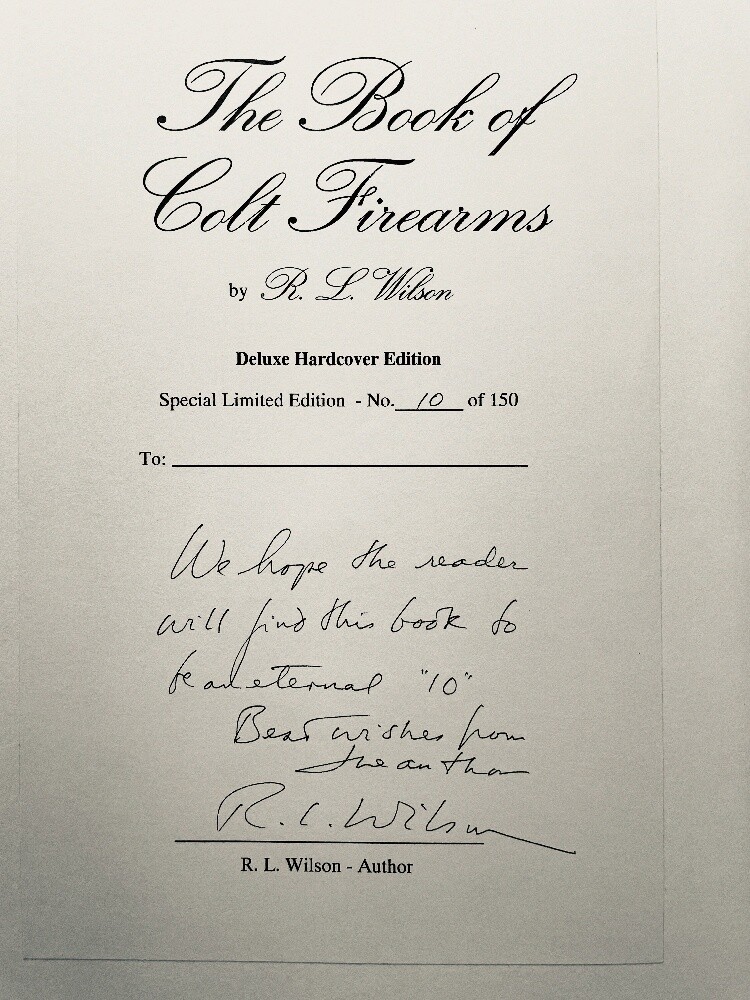 The Book of
Colt Firearms
by R. L. Wilson
Deluxe Hardcover Edition
Special Limited Edition - No. 10 of 150
To:
We hope the reader
will find this book to
be an eternal "10"
Best wishes from
the author
R. L. Wilson
R. L. Wilson - Author